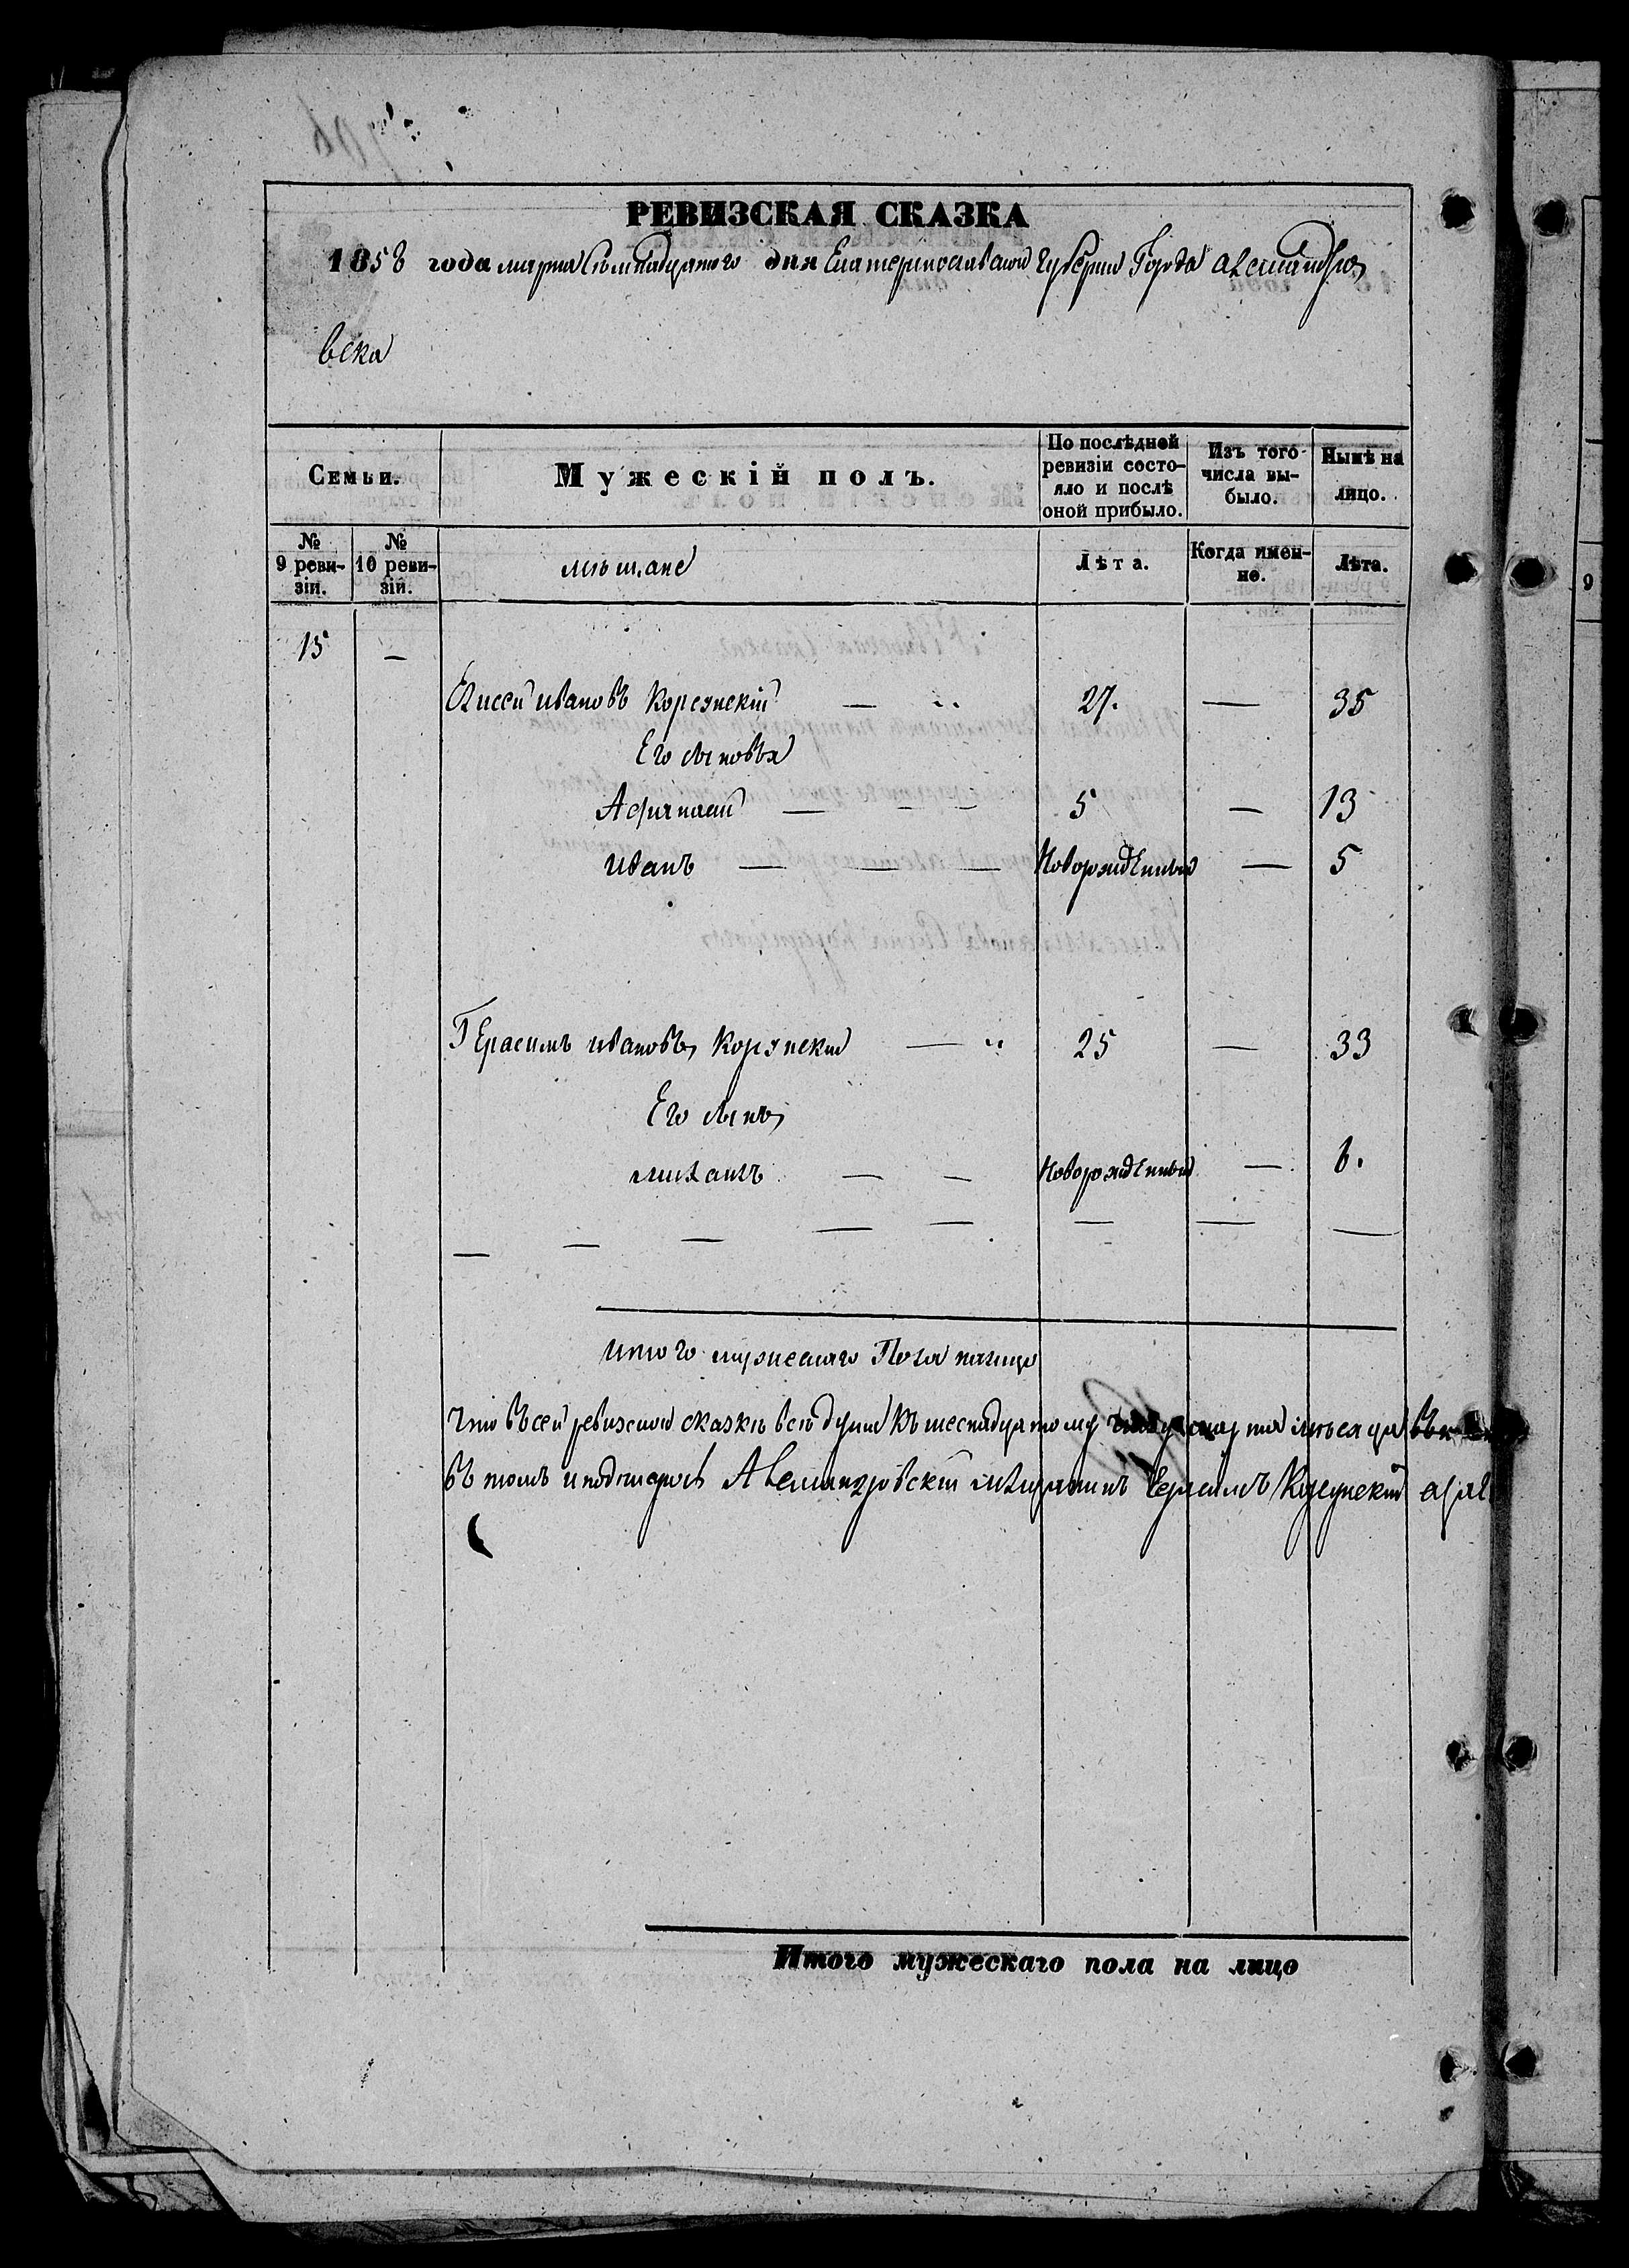 РЕВИЗСКАЯ СКАЗКА
1858 года марта Семнадцатого дня Екатеринославской губернии Города Александро
вска
Семьи.
Мужескій полъ.
По послѣдней ревизіи состо-
яло и послѣ
оной прибыло.
Изъ того
числа вы-
было.
Нынѣ на
лицо.
№
9 реви-
зіи.
№
10 реви-
зіи.
мещане
Лѣта.
Когда имен-
но.
Лѣта.
15 —
Елисей ивановъ Корсунскій — 27. — 35
Его сыновья
Афанасий — 5 — 13
иванъ — Новорожденный — 5
Герасимъ ивановъ Корсунский — 25 — 33
Его сынъ
михаилъ — Новорожденный — 6.
итого мужескаго Пола налицо
Что въ сей ревизской сказке все души къ шеснадцатому марта месяца
въ томъ и подписуюсь Александровский мещанинъ Герасимъ Корсунский
Итого мужескаго пола на лицо